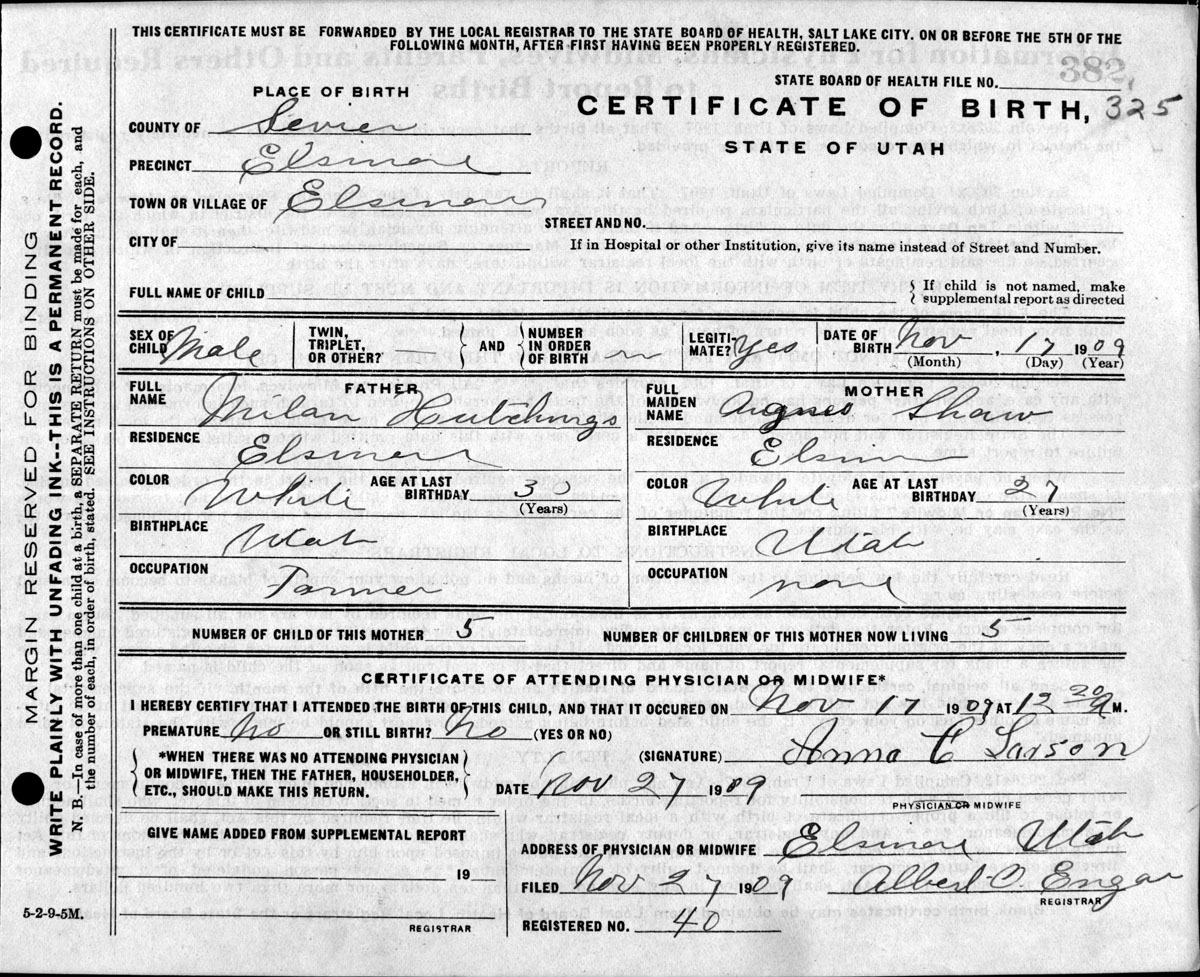 THIS CERTIFICATE MUST BE FORWARDED BY THE LOCAL REGISTRAR TO THE STATE BOARD OF HEALTH, SALT LAKE CITY. ON OR BEFORE THE 5TH OF THE
FOLLOWING MONTH, AFTER FIRST HAVING BEEN PROPERLY REGISTERED.
382
STATE BOARD OF HEALTH FILE NO.
PLACE OF BIRTH
CERTIFICATE OF BIRTH, 325
STATE OF UTAH
COUNTY OF Sevier
PRECINCT Elsinore
TOWN OR VILLAGE OF Elsinore
STREET AND NO.
CITY OF
If in Hospital or other Institution, give its name instead of Street and Number.
FULL NAME OF CHILD
If child is not named, make
supplemental report as directed
SEX OF CHILD Male
TWIN, TRIPLET, OR OTHER?
AND
NUMBER IN ORDER OF BIRTH
LEGITIMATE? Yes
DATE OF BIRTH Nov, 17 1909
(Month) (Day) (Year)
FATHER
FULL NAME Milan Hutchings
RESIDENCE Elsinore
COLOR White AGE AT LAST BIRTHDAY
(Years)
BIRTHPLACE Utah
OCCUPATION Farmer
MOTHER
FULL MAIDEN NAME Angnes Shaw
RESIDENCE Elsin
COLOR White AGE AT LAST BIRTHDAY 27
(Years)
BIRTHPLACE Utah
OCCUPATION none
NUMBER OF CHILD OF THIS MOTHER 5 NUMBER OF CHILDREN OF THIS MOTHER NOW LIVING 5
CERTIFICATE OF ATTENDING PHYSICIAN OR MIDWIFE*
I HEREBY CERTIFY THAT I ATTENDED THE BIRTH OF THIS CHILD, AND THAT IT OCCURED ON Nov 17 1909 AT 12 20 M.
PREMATURE No OR STILL BIRTH? No (YES OR NO)
*WHEN THERE WAS NO ATTENDING PHYSICIAN
OR MIDWIFE, THEN THE FATHER, HOUSEHOLDER,
ETC., SHOULD MAKE THIS RETURN.
(SIGNATURE) Anna C Larson
DATE Nov 27 1909
PHYSICIAN OR MIDWIFE
GIVE NAME ADDED FROM SUPPLEMENTAL REPORT
19
REGISTRAR
ADDRESS OF PHYSICIAN OR MIDWIFE Elsinore Utah
FILED Nov 27 1909 Albert O. Engar
REGISTRAR
REGISTERED NO. 40
5-2-9-5M.
MARGIN RESERVED FOR BINDING
WRITE PLAINLY WITH UNFADING INK--THIS IS A PERMANENT RECORD.
N. B.—In case of more than one child at a birth, a SEPARATE RETURN must be made for each, and
the number of each, in order of birth, stated. SEE INSTRUCTIONS ON OTHER SIDE.